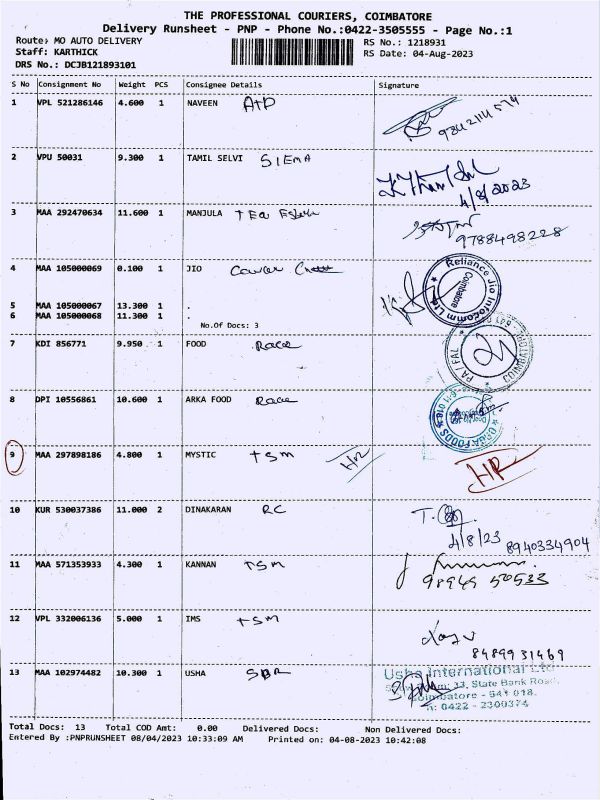 THE PROFESSIONAL COURIERS, COIMBATORE
Delivery Runsheet - PNP - Phone No.:0422-3505555 - Page No.:1
Route: MO AUTO DELIVERY RS No.: 1218931
Staff: KARTHICK RS Date: 04-Aug-2023
DRS No.: DCJB121893101
S No Consignment No Weight PCS Consignee Details Signature
1 VPL 521286146 4.600 1 NAVEEN
2 VPU 50031 9.300 1 TAMIL SELVI SIEMA
4/8/2023
3 MAA 292470634 11.600 1 MANJULA TEA
9788498228
4 MAA 105000069 0.100 1 JIO
Reliance Jio Infocomm Ltd.
Coimbatore
5 MAA 105000067 13.300 1 .
6 MAA 105000068 11.300 1 .
No.Of Docs: 3
7 KDI 856771 9.950 1 FOOD Race
8 DPI 10556861 10.600 1 ARKA FOOD Race
FOODS
9 MAA 297898186 4.800 1 MYSTIC TSM HR HR
10 KUR 530037386 11.000 2 DINAKARAN RC
4/8/23 8940334904
11 MAA 571353933 4.300 1 KANNAN TSM
98945 50533
12 VPL 332006136 5.000 1 IMS TSM
8489931469
13 MAA 102974482 10.300 1 USHA SBR
Usha International Ltd
33, State Bank Road,
Coimbatore - 641 018.
0422 - 2300374
Total Docs: 13 Total COD Amt: 0.00 Delivered Docs: Non Delivered Docs:
Entered By :PNPRUNSHEET 08/04/2023 10:33:09 AM Printed on: 04-08-2023 10:42:08